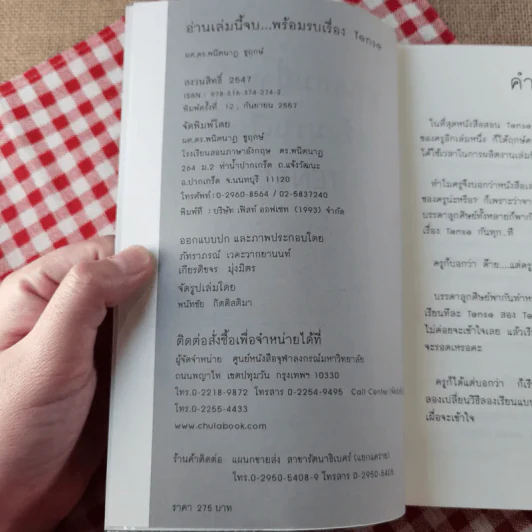 อ่านเล่มนี้จบ...พร้อมรบเรื่อง Tense
ผศ.ดร.พนิตนาฏ ชูฤกษ์
สงวนสิทธิ์ 2547
ISBN : 978-616-374-274-2
พิมพ์ครั้งที่ 12, กันยายน 2557
จัดพิมพ์โดย
ผศ.ดร.พนิตนาฏ ชูฤกษ์
โรงเรียนสอนภาษาอังกฤษ ดร.พนิตนาฏ
264 ม.2 ท่าน้ำปากเกร็ด ถ.แจ้งวัฒนะ
อ.ปากเกร็ด จ.นนทบุรี 11120
โทรศัพท์ : 0-2960-8564 / 02-5837240
พิมพ์ที่ : บริษัท เฟิสท์ ออฟเซท (1993) จำกัด
ออกแบบปก และภาพประกอบโดย
ภัทราภรณ์ เวคะวากยานนท์
เกียรติขจร มุ่งมิตร
จัดรูปเล่มโดย
พนัทชัย กิตติสติมา
ติดต่อสั่งซื้อเพื่อจำหน่ายได้ที่
ผู้จัดจำหน่าย ศูนย์หนังสือจุฬาลงกรณ์มหาวิทยาลัย
ถนนพญาไท เขตปทุมวัน กรุงเทพฯ 10330
โทร.0-2218-9872 โทรสาร 0-2254-9495 Call Center
โทร.0-2255-4433
www.chulabook.com
ร้านค้าติดต่อ แผนกขายส่ง สาขารัตนาธิเบศร์ (แยกแคราย)
โทร.0-2950-5408-9 โทรสาร 0-2950-5405
ราคา 275 บาท
คำ
ในที่สุดหนังสือสอน Tense
ของครูอีกเล่มหนึ่ง ก็ได้ฤกษ์
ได้ใช้เวลาในการผลิตงานเล่ม
ทำไมครูจึงบอกว่าหนังสือ
ของครูน่ะหรือ? ก็เพราะว่า
บรรดาลูกศิษย์ทั้งหลายก็พา
เรื่อง Tense กันทุก ที
ครูก็บอกว่า ด้าย....แต่ครู
บรรดาลูกศิษย์พากันทำห
เรียนทีละ Tense สอง
ไม่ค่อยจะเข้าใจเลย แล้ว
จะรอดเหรอคะ
ครูก็ได้แต่บอกว่า ก็เรีย
ลองเปลี่ยนวิธีลองเรียนแบบ
เผื่อจะเข้าใจ